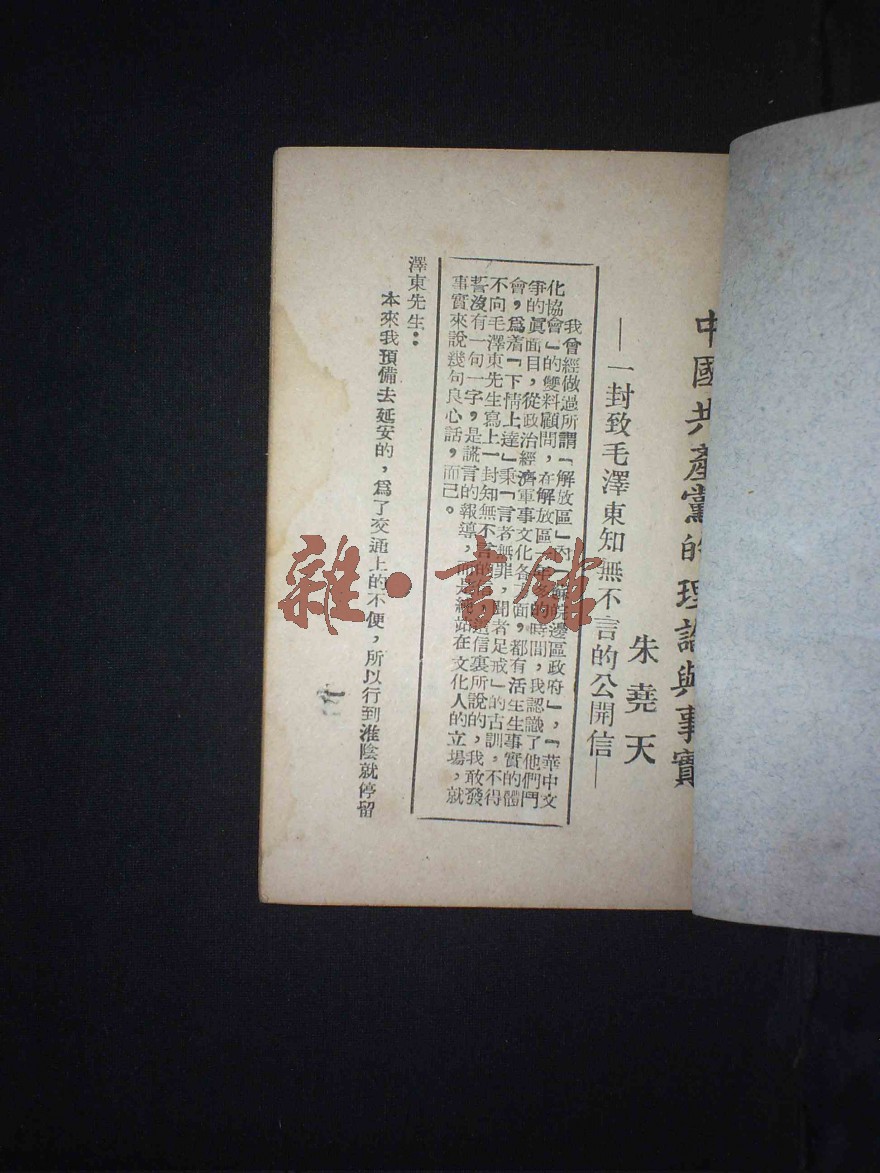 中國共產黨的理論與事實
朱堯天
——一封致毛澤東知無不言的公開信——
我曾經做過所謂「解放區」內「邊區政府」,「華中文
化協會」的雙料顧問,在解放區的時間,我認識了他們鬥
爭的眞面目,從政治經濟軍事文化各方面,都有活生生事實的體
會,爲着「下情上達」秉「言者無罪,聞者足戒」的古訓,不得
不向毛澤東先生寫上一封知無不言的信,這信裏所說的,我敢發
誓沒有一句一字,是謊言的報導,而是純站在文化人的立場,就
事實來說幾句良心話,而已。
澤東先生:
本來我預備去延安的,爲了交通上的不便,所以行到淮陰就停留
雜·書館